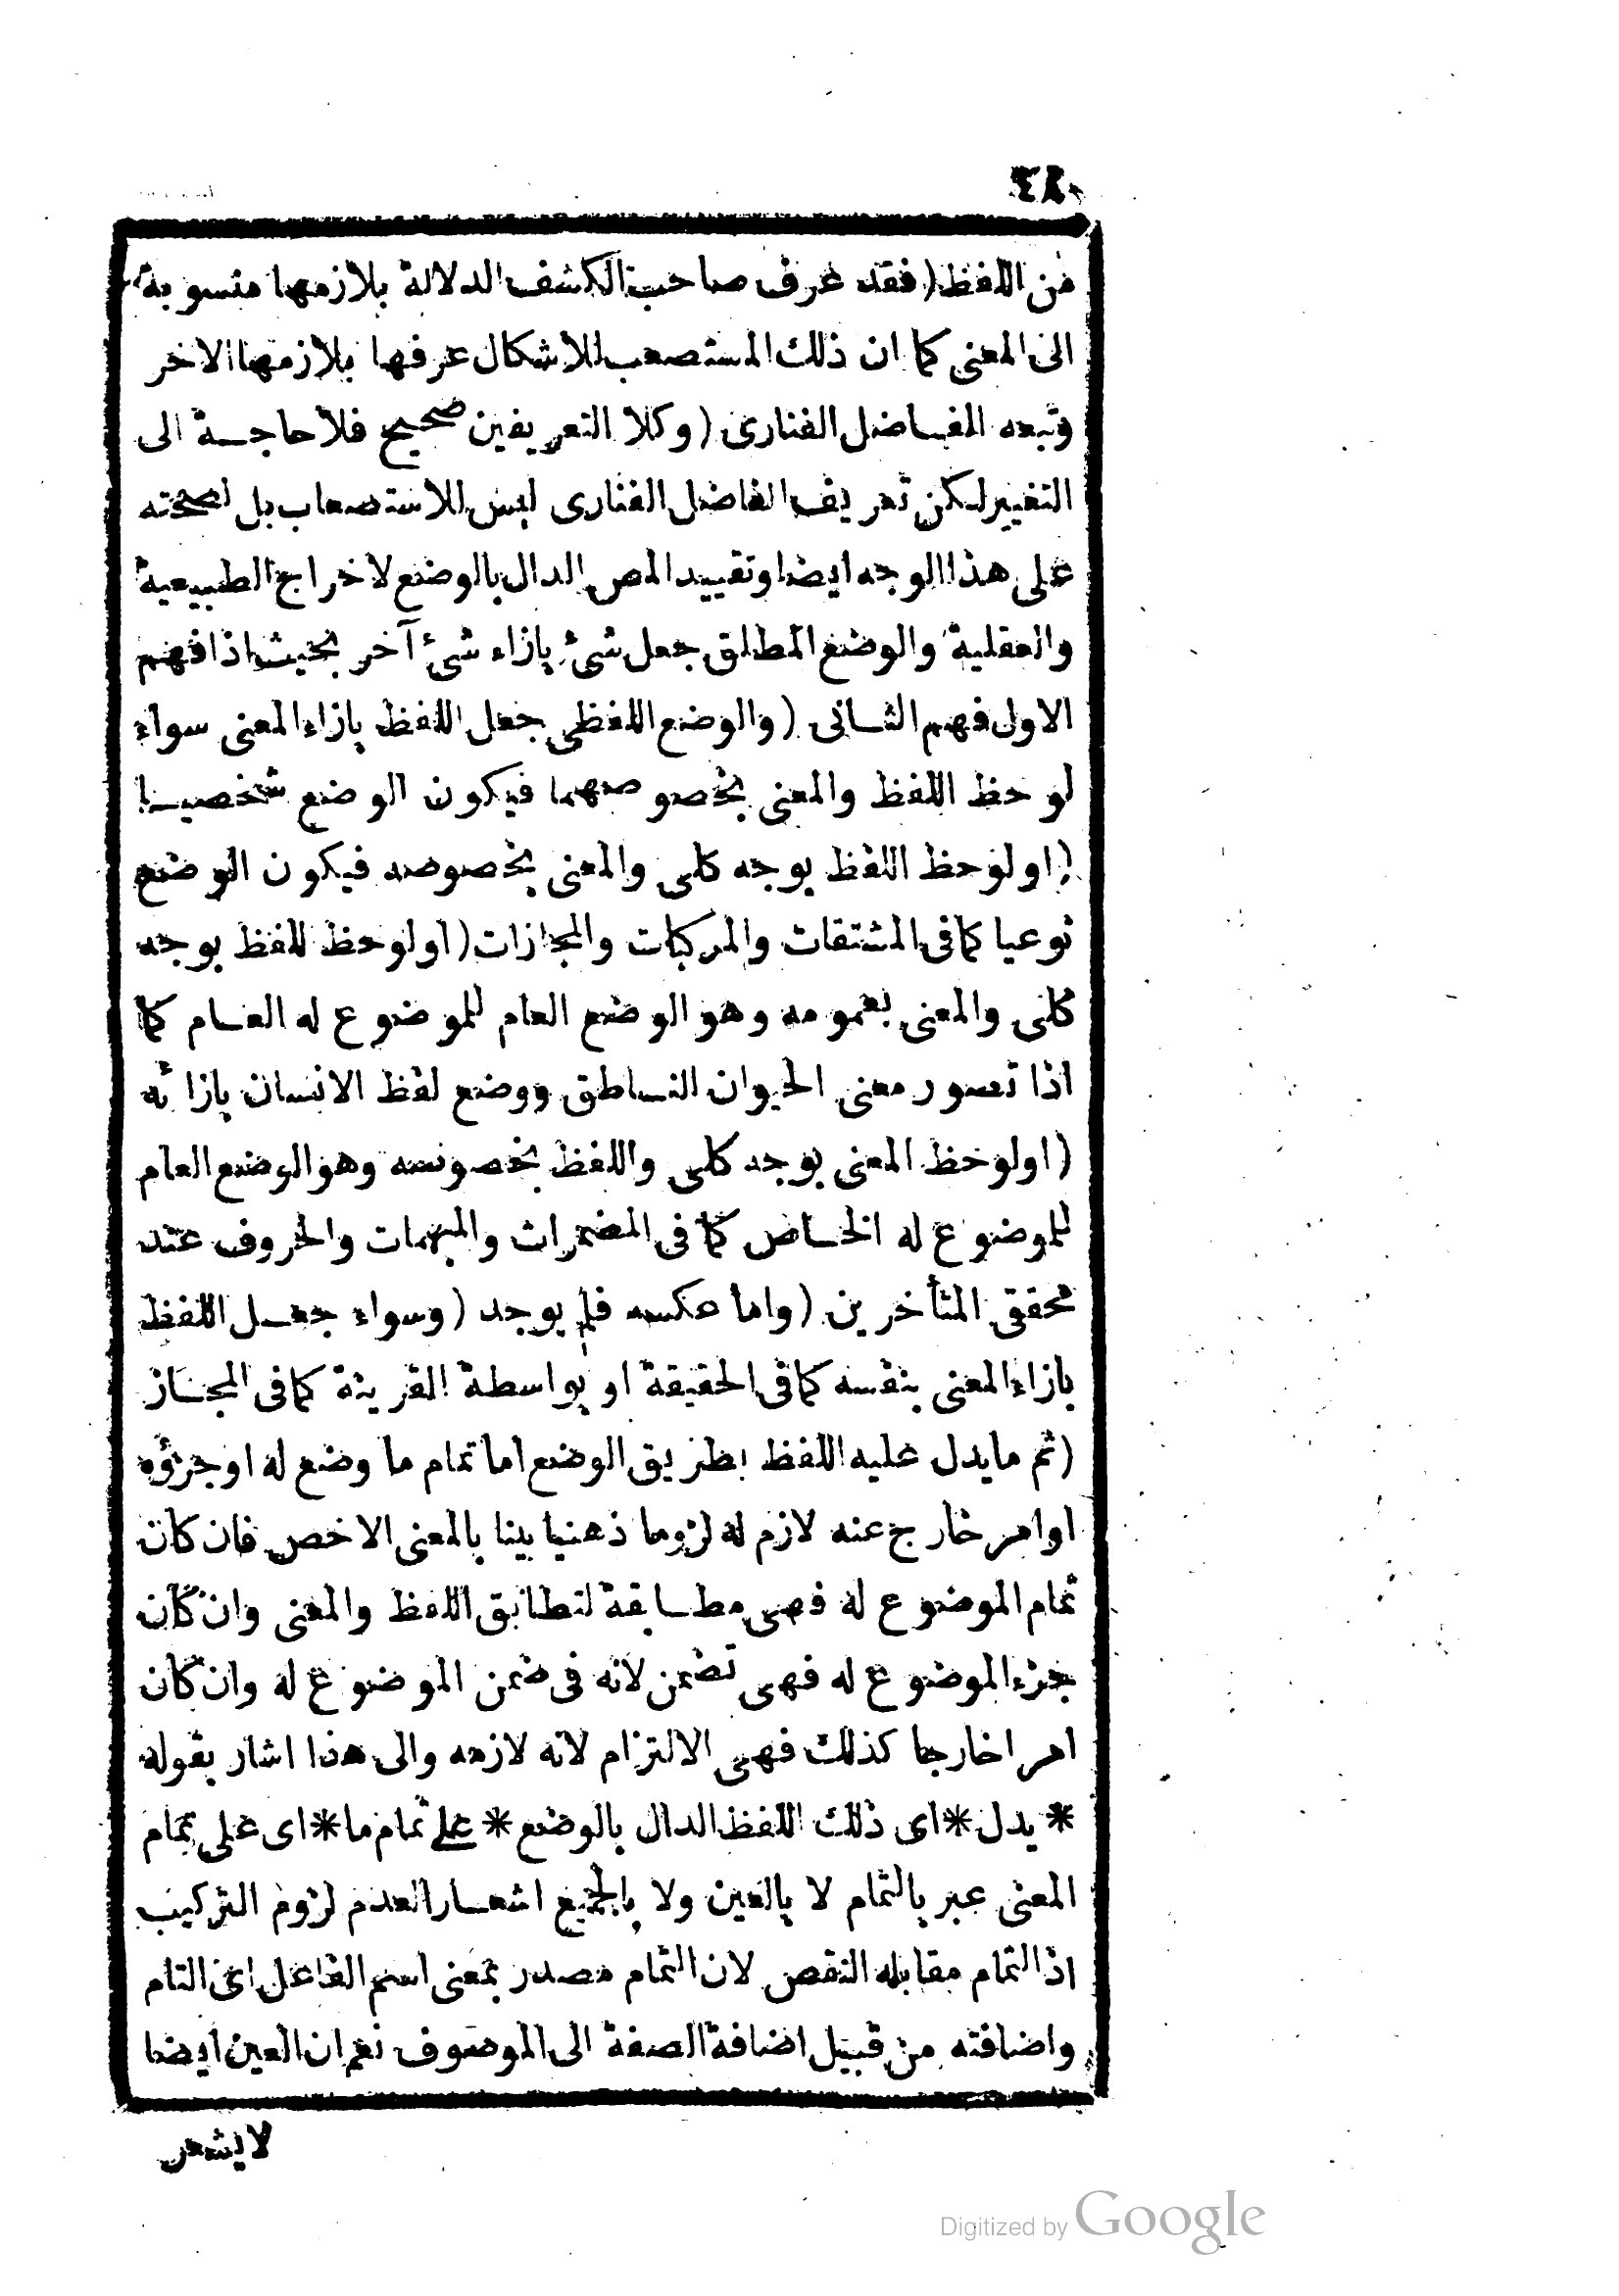 من اللفظ (فقد عرف صاحب الكشف الدلالة بلازمها منسوبة
الى المعنى كما ان ذلك المستصعب للاشكال عرفها بلازمها الاخر
وتبعه الفاضل الفنارى (وكلا التعريفين صحيح فلا حاجة الى
التغيير لكن تعريف الفاضل الفنارى ليس للاستصعاب بل لصحته
على هذا الوجه ايضا وتقييد المص الدال بالوضع لاخراج الطبيعية
والعقلية والوضع المطلق جعل شئ بازاء شئ آخر بحيث اذا فهم
الاول فهم الثانى (والوضع اللفظى جعل اللفظ بازاء المعنى سواء
لوحظ اللفظ والمعنى بخصوصهما فيكون الوضع شخصيا
(اولوحظ اللفظ بوجه كلى والمعنى بخصوصه فيكون الوضع
نوعيا كمافى المشتقات والمركبات والمجازات (اولوحظ اللفظ بوجه
كلى والمعنى بعمومه وهو الوضع العام للموضوع له العام كما
اذا تصور معنى الحيوان الناطق ووضع لفظ الانسان بازائه
(اولوحظ المعنى بوجه كلى واللفظ بخصوصه وهو الوضع العام
للموضوع له الخاص كما فى المضمرات والمبهمات والحروف عند
محققى المتأخرين (واما عكسه فلم يوجد (وسواء جعل اللفظ
بازاء المعنى بنفسه كمافى الحقيقة او بواسطة القرينة كمافى المجاز
(ثم مايدل عليه اللفظ بطريق الوضع اما تمام ما وضع له اوجزؤه
اوامر خارج عنه لازم له لزوما ذهنيا بينا بالمعنى الاخص فان كان
تمام الموضوع له فهى مطابقة لتطابق اللفظ والمعنى وان كان
جزء الموضوع له فهى تضمن لانه فى ضمن الموضوع له وان كان
امرا خارجا كذلك فهى الالتزام لانه لازمه والى هذا اشار بقوله
* يدل * اى ذلك اللفظ الدال بالوضع * على تمام ما * اى على تمام
المعنى عبر بالتمام لا بالعين ولا بالجميع اشعارا لعدم لزوم التركيب
اذ التمام مقابله النقص لان التمام مصدر بمعنى اسم الفاعل اى التام
واضافته من قبيل اضافة الصفة الى الموصوف نعم ان العين ايضا
لايشعر
Digitized by Google